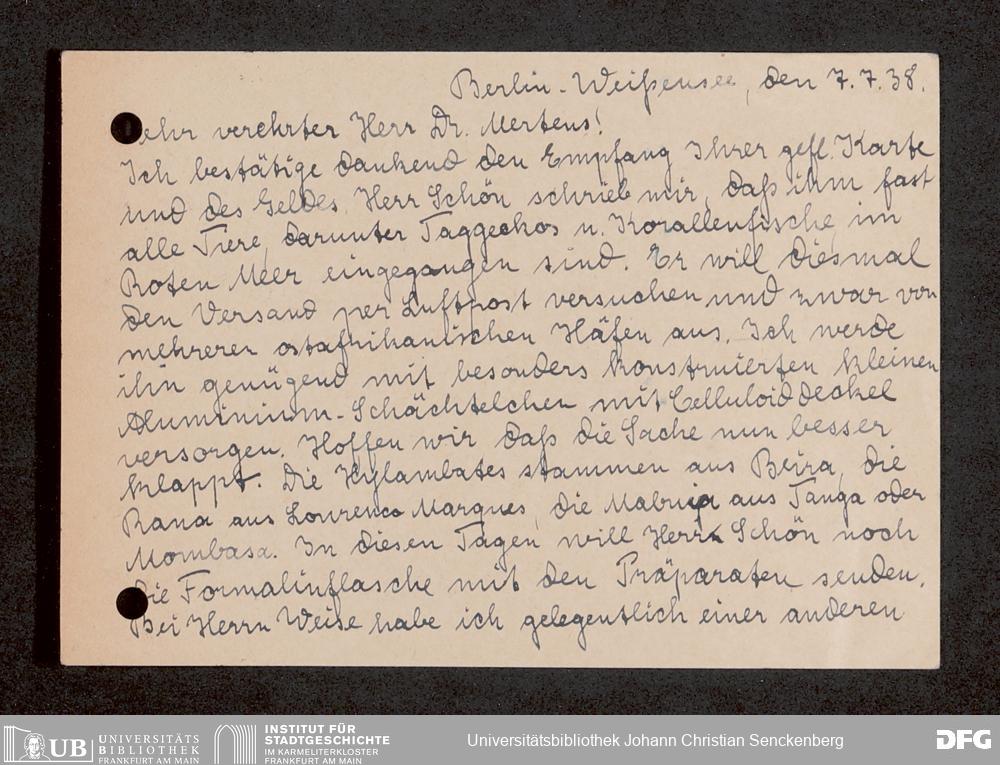 Berlin-Weißensee, den 7.7.38.
ehr verehrter Herr Dr. Mertens!
Ich bestätige dankend den Empfang Ihrer gefl. Karte
und des Geldes. Herr Schön schrieb mir, daß ihm fast
alle Tiere, darunter Taggeckos u. Korallenfische, im
Roten Meer eingegangen sind. Er will diesmal
den Versand per Luftpost versuchen und zwar von
mehreren ostafrikanischen Häfen aus. Ich werde
ihn genügend mit besonders konstruierten kleinen
Aluminium-Schächtelchen mit Celluloiddeckel
versorgen. Hoffen wir daß die Sache nun besser
klappt. Die Hylambates stammen aus Beira, die
Rana aus Lourenco Marques, die Mabuia aus Tanga oder
Mombasa. In diesen Tagen will Herr Schön noch
die Formalinflasche mit den Präparaten senden.
Bei Herrn Weise habe ich gelegentlich einer anderen
UB UNIVERSITÄTS
BIBLIOTHEK
FRANKFURT AM MAIN
INSTITUT FÜR
STADTGESCHICHTE
IM KARMELITERKLOSTER
FRANKFURT AM MAIN
Universitätsbibliothek Johann Christian Senckenberg
DFG